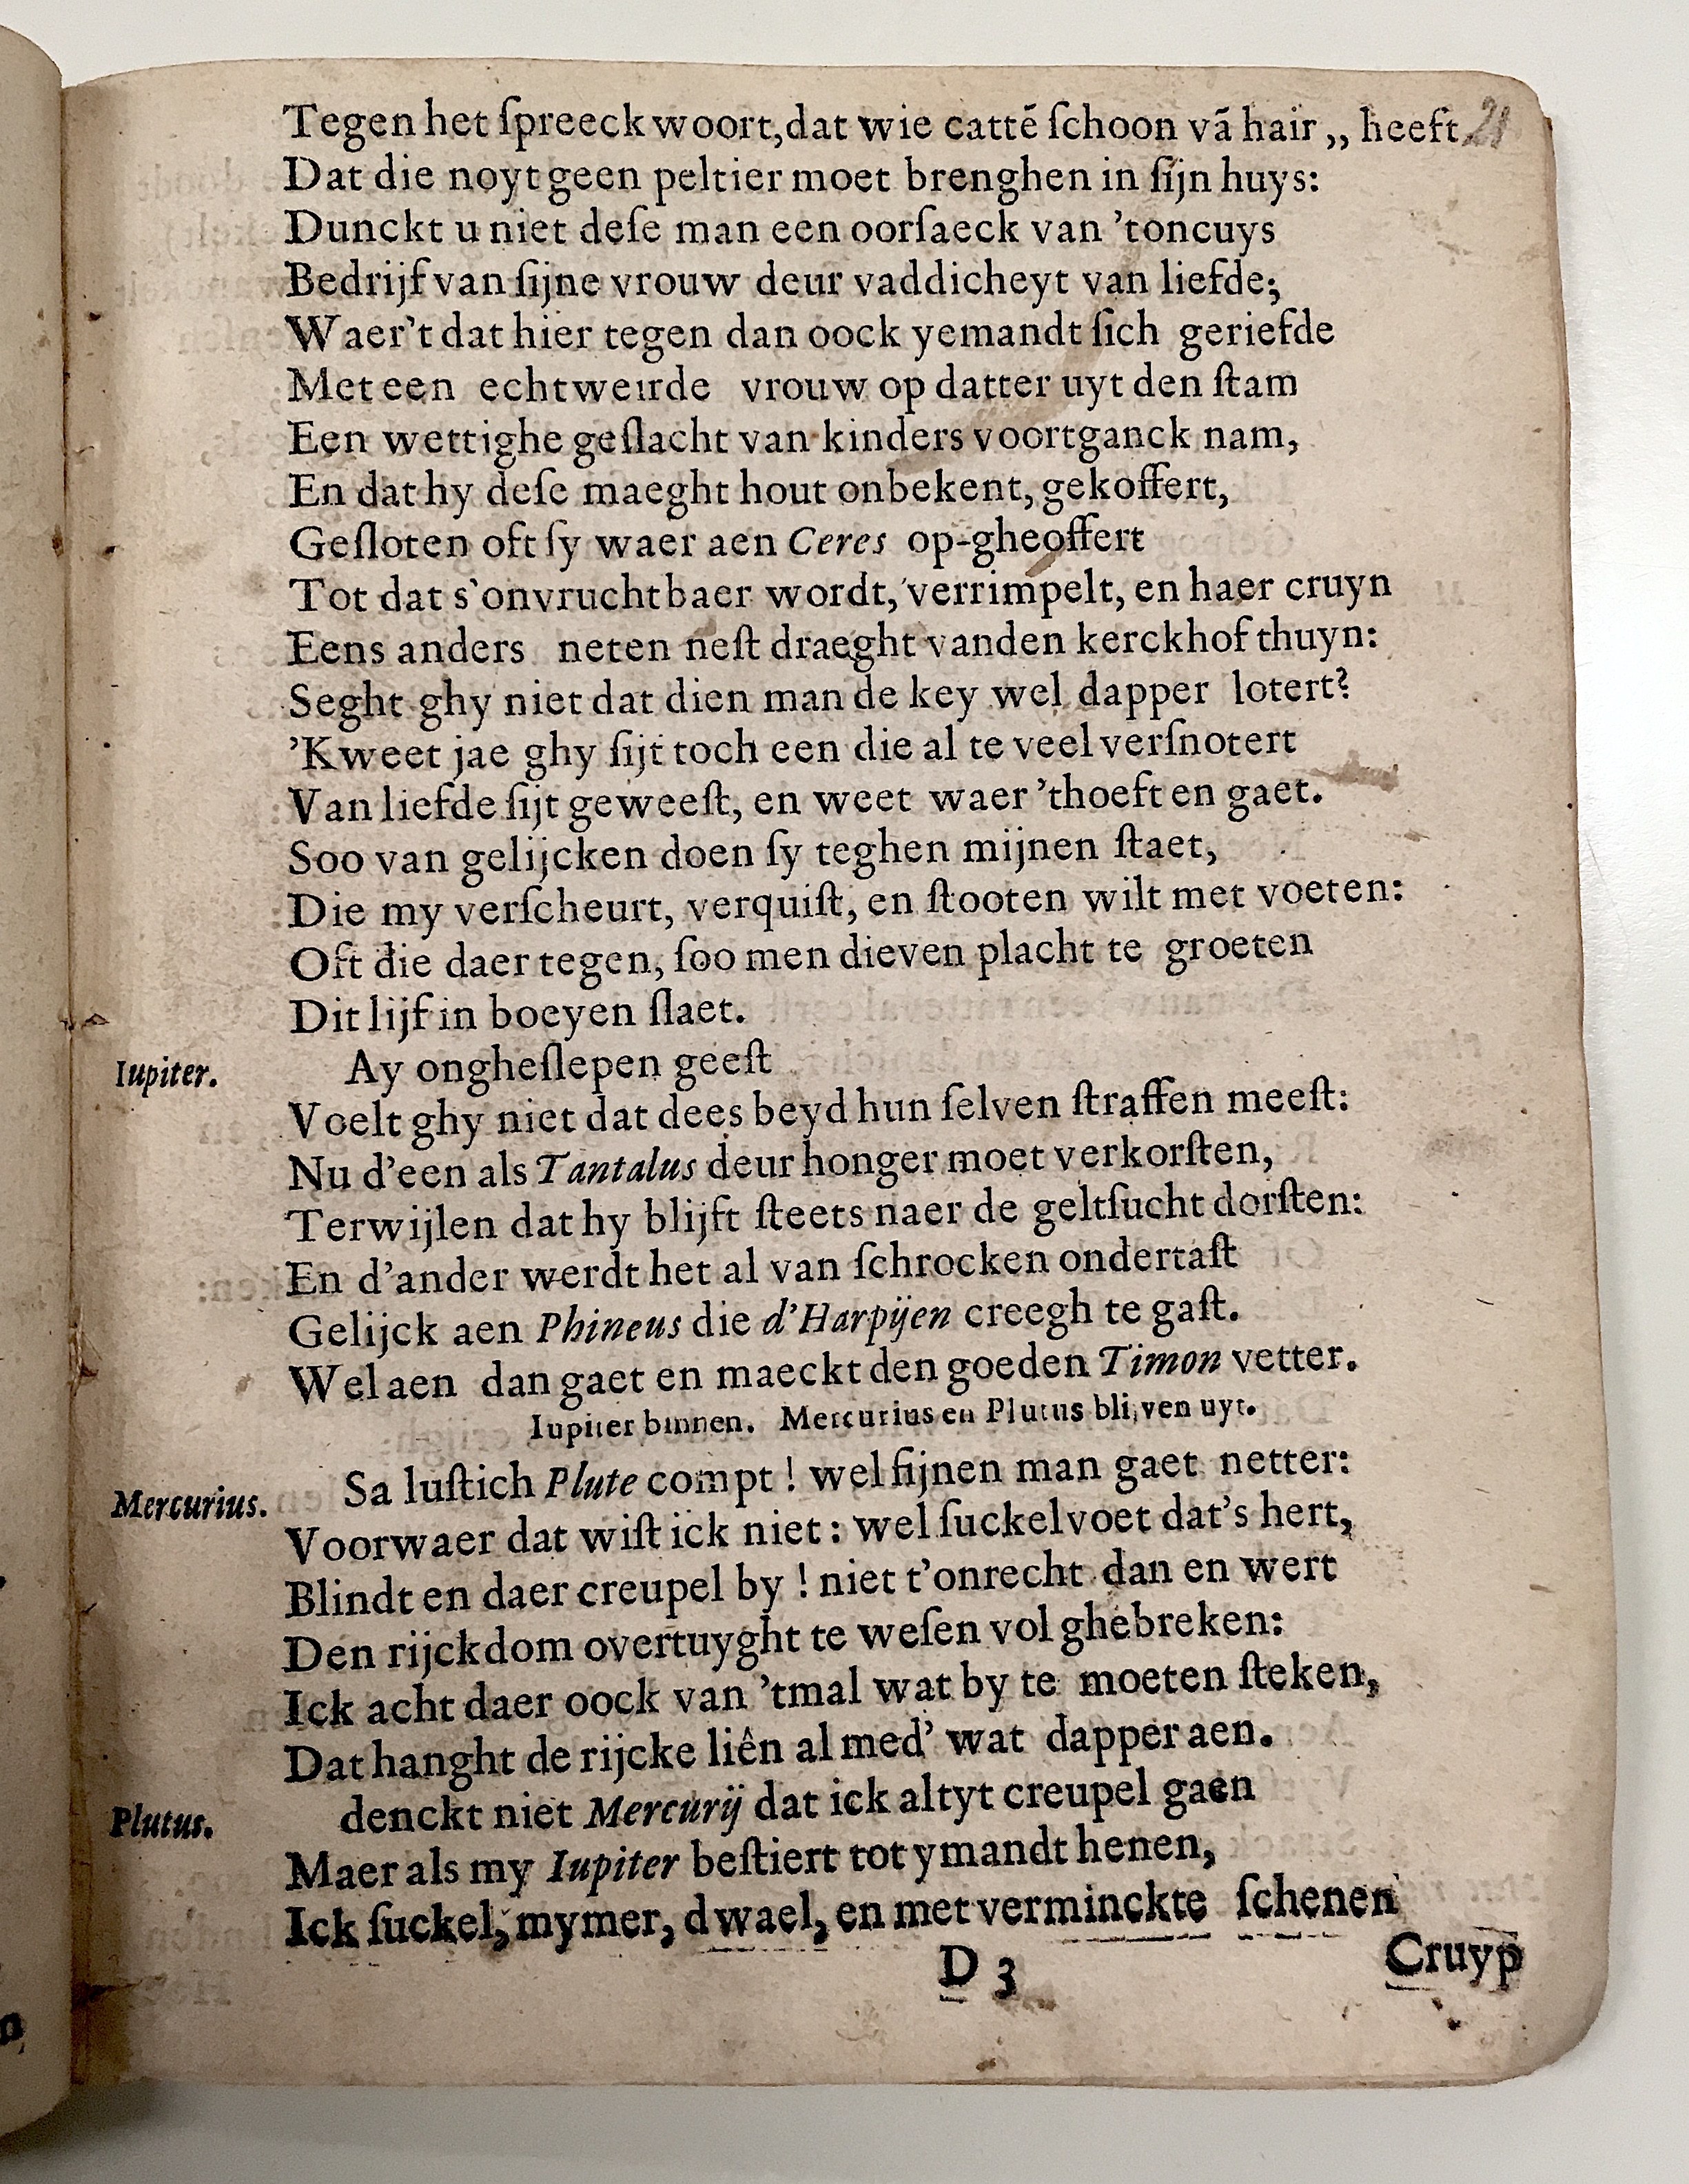 Tegen het ſpreeck woort, dat wie cattē ſchoon vā hair ,, heeft 21
Dat die noyt geen peltier moet brenghen in ſijn huys:
Dunckt u niet deſe man een oorſaeck van ’toncuys
Bedrijf van ſijne vrouw deur vaddicheyt van liefde;
Waer’t dat hier tegen dan oock yemandt ſich geriefde
Met een echtweirde vrouw op datter uyt den ſtam
Een wettighe geſlacht van kinders voortganck nam,
En dat hy deſe maeght hout onbekent, gekoffert,
Geſloten oft ſy waer aen Ceres op-gheoffert
Tot dat s’onvruchtbaer wordt, verrimpelt, en haer cruyn
Eens anders neten neſt draeght vanden kerckhof thuyn:
Seght ghy niet dat dien man de key wel dapper lotert?
’Kweet jae ghy ſijt toch een die al te veel verſnotert
Van liefde ſijt geweeſt, en weet waer ’thoeft en gaet.
Soo van gelijcken doen ſy teghen mijnen ſtaet,
Die my verſcheurt, verquiſt, en ſtooten wilt met voeten:
Oft die daer tegen, ſoo men dieven placht te groeten
Dit lijf in boeyen ſlaet.
Iupiter. Ay ongheſlepen geeſt
Voelt ghy niet dat dees beyd hun ſelven ſtraffen meeſt:
Nu d’een als Tantalus deur honger moet verkorſten,
Terwijlen dat hy blijft ſteets naer de geltſucht dorſten:
En d’ander werdt het al van ſchrocken ondertaſt
Gelijck aen Phineus die d’Harpijen creegh te gaſt.
Wel aen dan gaet en maeckt den goeden Timon vetter.
Iupiter binnen. Mercurius en Plutus blijven uyt.
Mercurius. Sa luſtich Plute compt ! wel ſijnen man gaet netter:
Voorwaer dat wiſt ick niet : wel ſuckelvoet dat’s hert,
Blindt en daer creupel by ! niet t’onrecht dan en wert
Den rijckdom overtuyght te weſen vol ghebreken:
Ick acht daer oock van ’tmal wat by te moeten ſteken,
Dat hanght de rijcke liên al med’ wat dapper aen.
Plutus. denckt niet Mercurij dat ick altyt creupel gaen
Maer als my Iupiter beſtiert tot ymandt henen,
Ick ſuckel, mymer, dwael, en met verminckte ſchenen
D 3 Cruyp